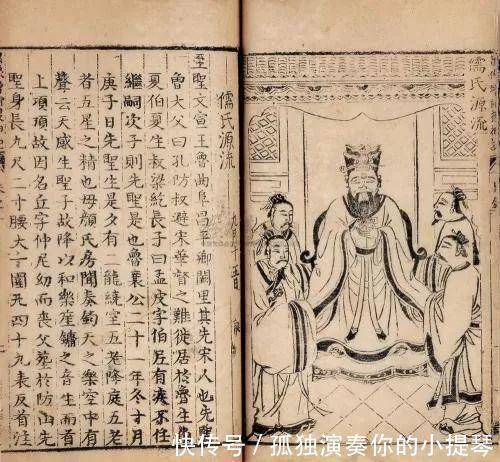 儒氏源流
儒氏源流
至聖文宣王魯曲阜昌平鄉闕里其先宋人也先聖
魯大父曰孔防叔避宋華督之難徙居於魯生
夏伯夏生叔梁紇長子曰孟皮字伯尼有疾不
繼嗣次子則先聖是也魯襄公二十一年冬十月
庚子日先聖生是夕有二龍繞室五老降庭五老
者五星之精也母顏氏房聞奏鈞天之樂空中有
聲云天感生聖子故降以和樂笙鏞之音生而首
上頂項故因名丘字仲尼幼而喪父葬於防山先
聖身長九尺二寸腰大十圍凡四十九表反首洼
快传号 / 孤独演奏你的小提琴